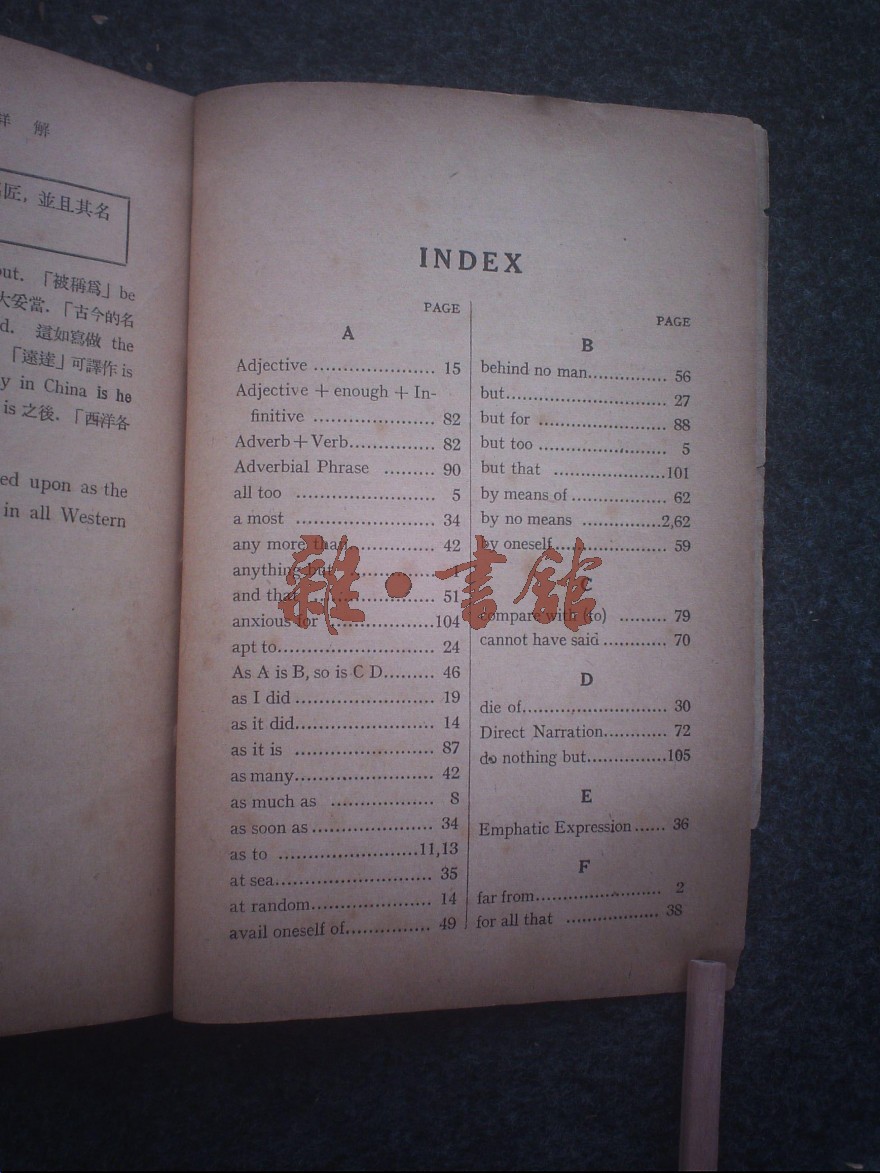 詳 解
匠, 並且其名
out. 「被稱爲」be
大妥當. 「古今的名
d. 這如寫做 the
「遠達」可譯作 is
y in China is he
is 之後. 「西洋各
ed upon as the
in all Western
INDEX
PAGE
A
Adjective ..................... 15
Adjective + enough + In-
finitive ..................... 82
Adverb + Verb............... 82
Adverbial Phrase ......... 90
all too ........................ 5
a most ........................ 34
any more than............... 42
anything but
and that ..................... 51
anxious for ..................104
apt to........................... 24
As A is B, so is C D......... 46
as I did ........................ 19
as it did........................ 14
as it is ........................ 87
as many........................ 42
as much as .................. 8
as soon as ..................... 34
as to ........................11,13
at sea........................... 35
at random..................... 14
avail oneself of............... 49
PAGE
B
behind no man............... 56
but............................ 27
but for ........................ 88
but too ........................ 5
but that .....................101
by means of .................. 62
by no means ...............2,62
by oneself..................... 59
C
compare with (to) ......... 79
cannot have said ............ 70
D
die of........................... 30
Direct Narration............ 72
do nothing but...............105
E
Emphatic Expression ...... 36
F
far from........................ 2
for all that .................. 38
雜·書館